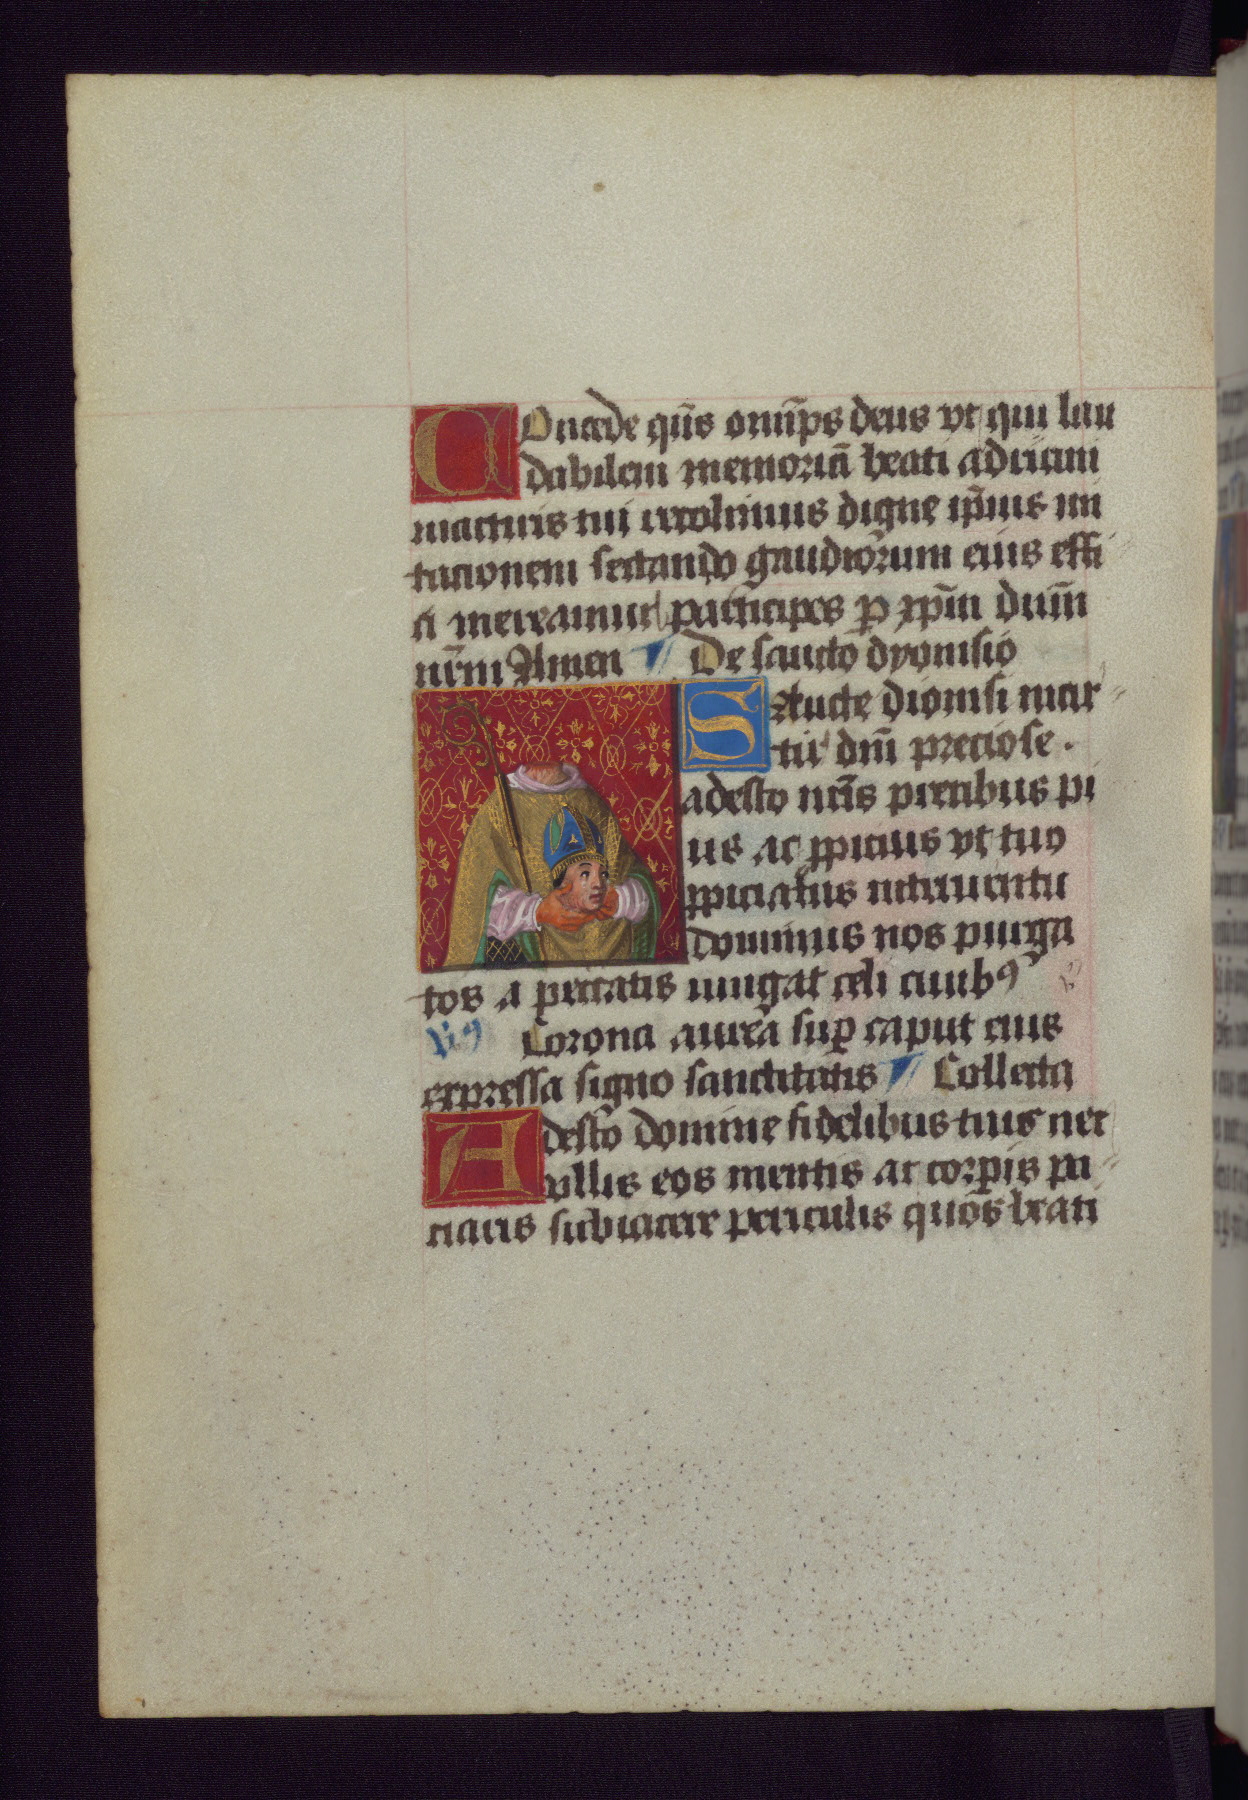 COncede qūs omīps deus vt qui lau
dabilem memoriā beati adriani
martiris tui recolimus digne ip̄ius imi
tacionem sectando gaudiorum eius effi
ci mereamur participes p xp̄m dum̄
nr̄m Amen De sancto dyonisio
SAncte dionisi mar
tir dm̄ preciose .
adesto nr̄is precibus pi
us ac ppicius vt tuo
ppiciatus interuentu
dominus nos purga
tos a peccatis iungat celi ciuibꝰ
v̄sꝰ Corona aurea suꝑ caput eius
expressa signo sanctitatis Collecta
Adesto domine fidelibus tuis nec
vllis eos mentis ac corꝑis pa
ciaris subiacere periculis quōs beati